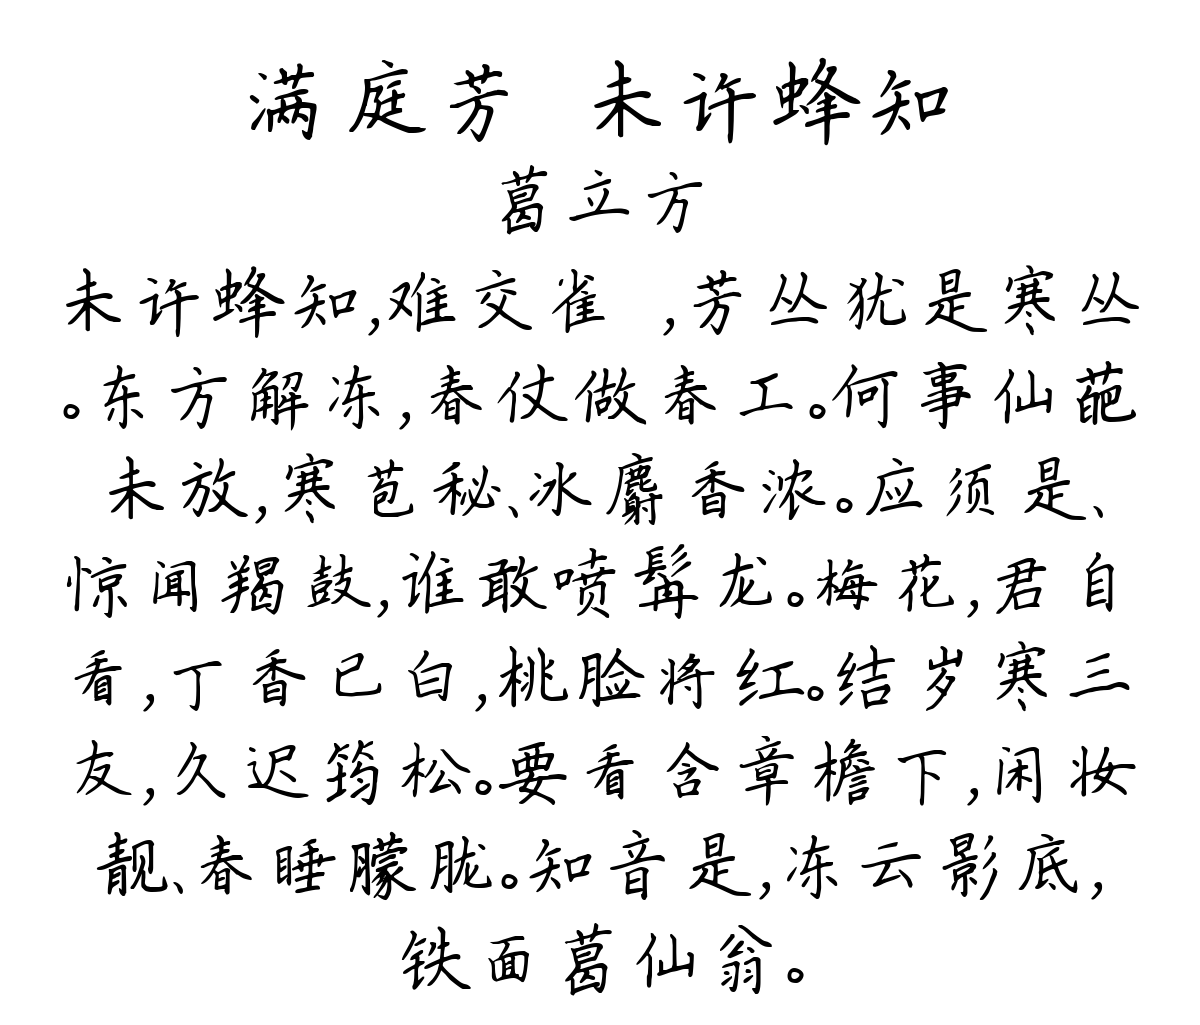 满庭芳 未许蜂知
葛立方
未许蜂知,难交雀 ,芳丛犹是寒丛
。东方解冻,春仗做春工。何事仙葩
未放,寒苞秘、冰麝香浓。应须是、
惊闻羯鼓,谁敢喷髯龙。梅花,君自
看,丁香已白,桃脸将红。结岁寒三
友,久迟筠松。要看含章檐下,闲妆
靓、春睡朦胧。知音是,冻云影底,
铁面葛仙翁。